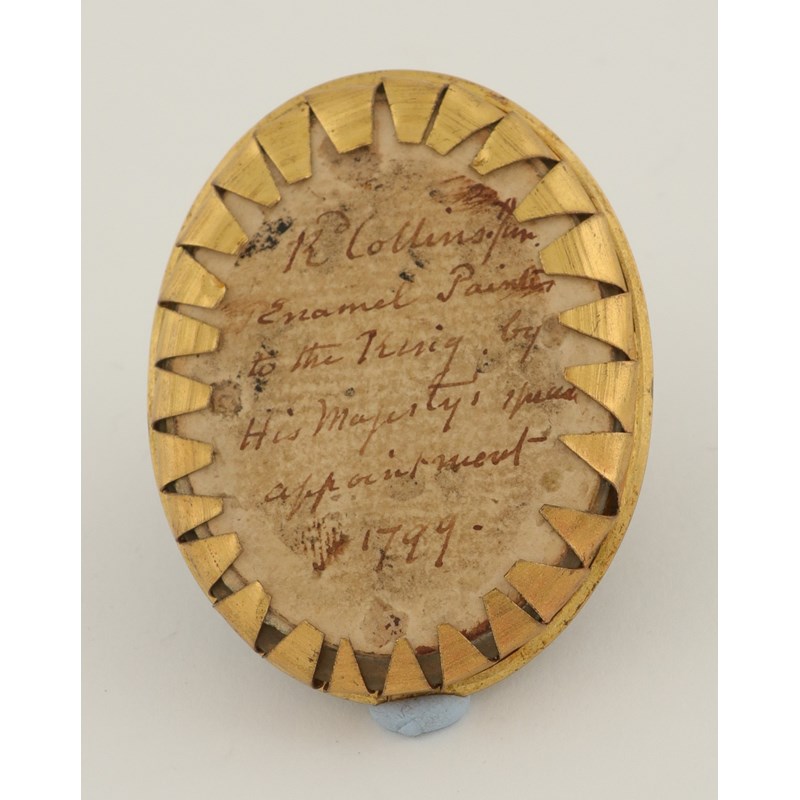 Rd Collins. Jun.
Enamel Painter
to the King, by
His Majesty's
appointment
1799.